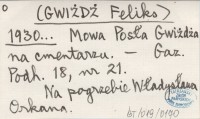 O
(GWIŻDŻ Feliks)
1930... Mowa Posła Gwiżdża
na cmentarzu. — Gaz.
Podh. 18, nr 21.
Na pogrzebie Władysława
Orkana.
BT/019/0190